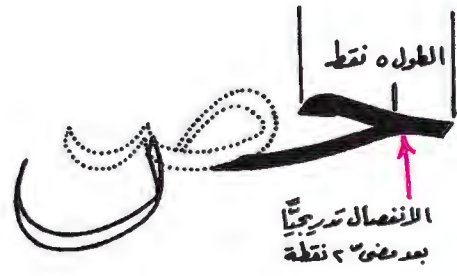 الطول ٥ نقط
حص
الانفصال تدريجيًّا
بعد مضى ٣ نقطة